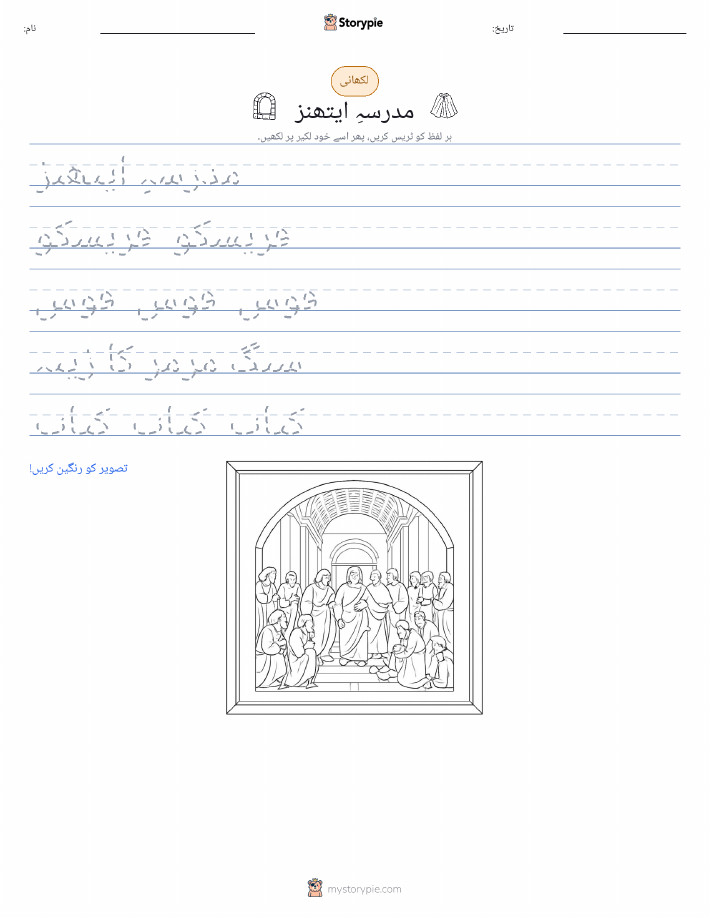 نام:
Storypie
تاریخ:
لکھائی
مدرسہِ ایتھنز
ہر لفظ کو ٹریس کریں، پھر اسے خود لکیر پر لکھیں۔
مدرسہِ ایتھنز
فریسکو فریسکو
قوس قوس قوس
سنگ مرمر کا زینہ
کتاب کتاب کتاب
تصویر کو رنگین کریں!
mystorypie.com